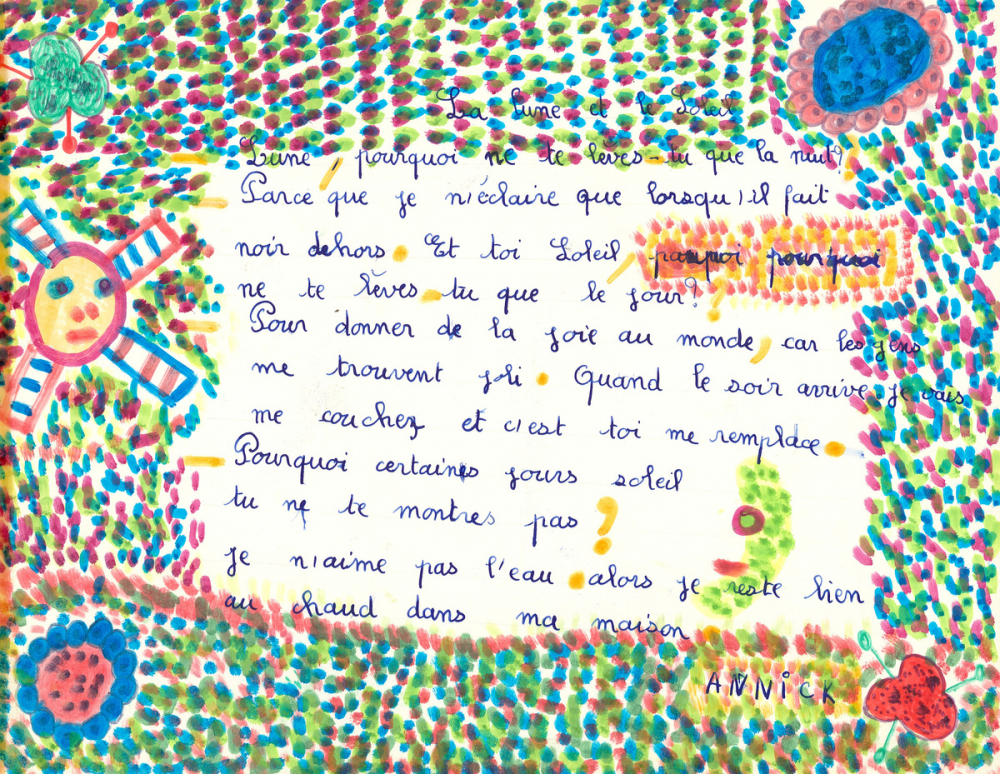 La lune et le Soleil
Lune, pourquoi ne te lèves-tu que la nuit?
Parce que je n'éclaire que lorsqu'il fait
noir dehors. Et toi Soleil, pourquoi pourquoi
ne te lèves-tu que le jour?
Pour donner de la joie au monde, car les gens
me trouvent joli. Quand le soir arrive je vais
me couchez et c'est toi me remplace.
Pourquoi certains jours soleil
tu ne te montres pas ?
Je n'aime pas l'eau. alors je reste bien
au chaud dans ma maison
ANNiCK